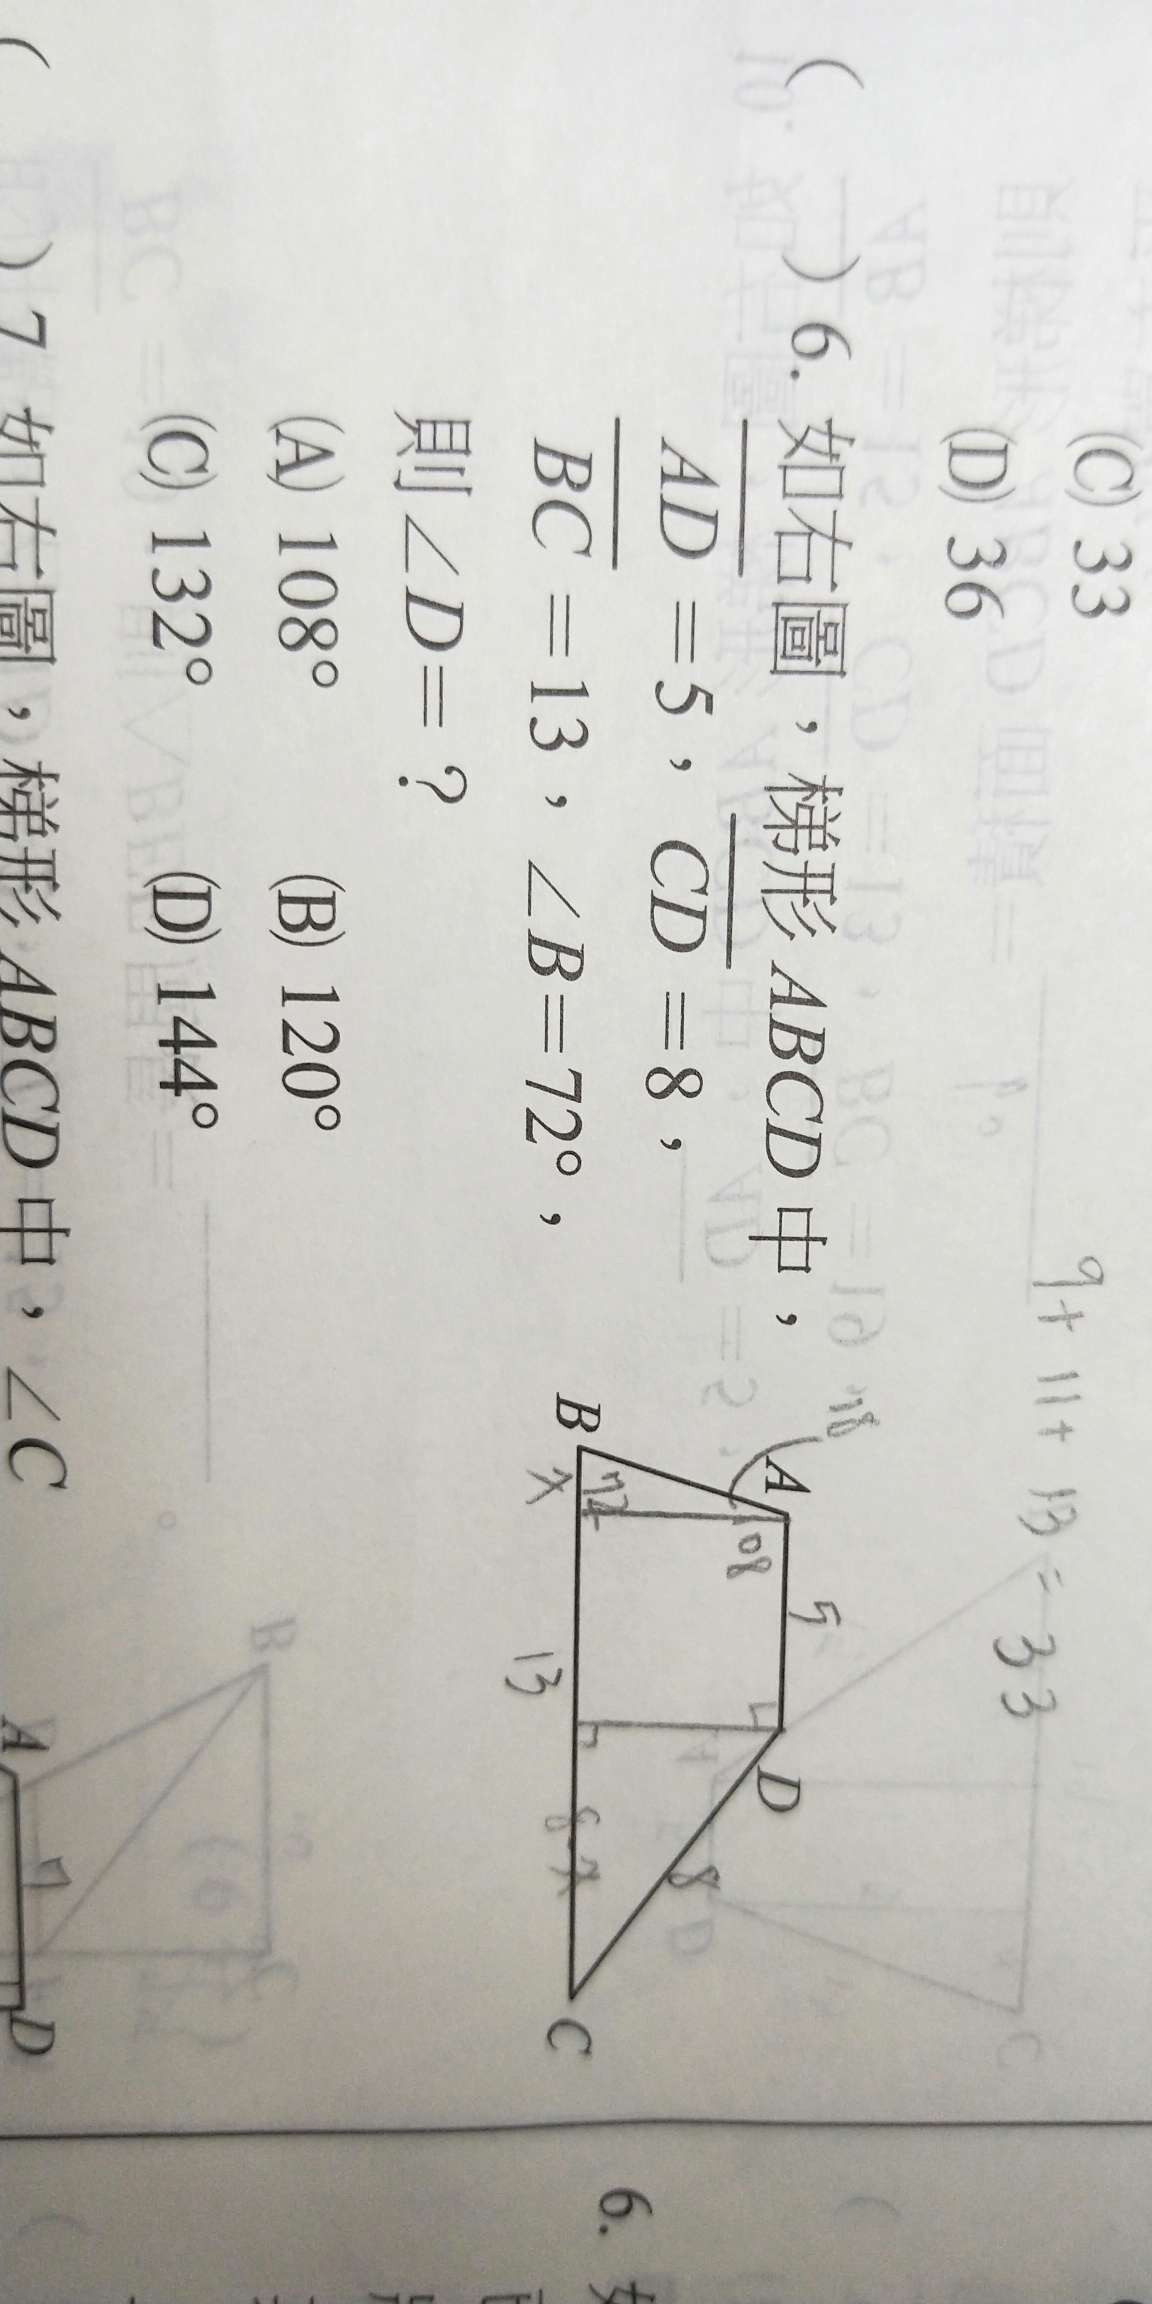 (C) 33
(D) 36
9+11+13=33
( ) 6. 如右圖，梯形ABCD中，
AD=5，CD=8，
BC=13，∠B=72°，
則∠D=？
(A) 108° (B) 120°
(C) 132° (D) 144°
18
A 5 D
108
8
72
B C
x 13 8-x
( ) 7 如右圖，梯形ABCD中，∠C
A D
6.